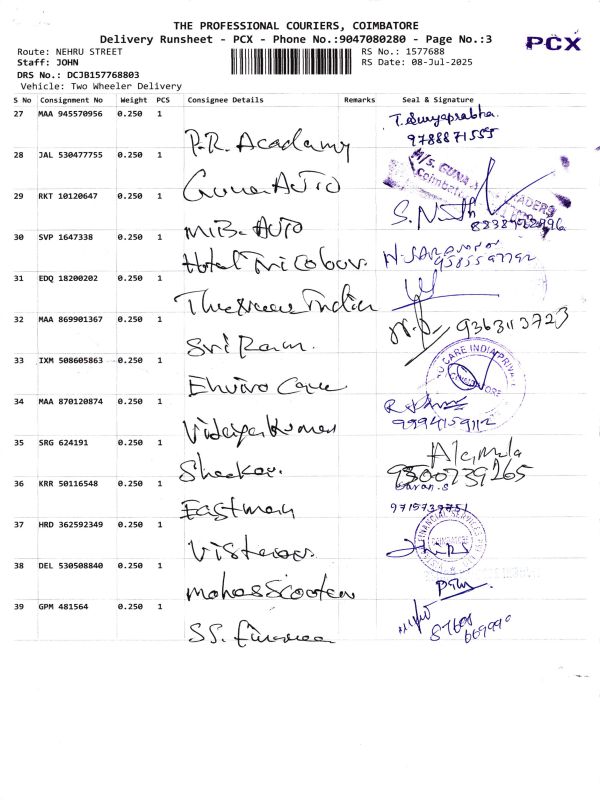 THE PROFESSIONAL COURIERS, COIMBATORE
Delivery Runsheet - PCX - Phone No.:9047080280 - Page No.:3
PCX
Route: NEHRU STREET
RS No.: 1577688
Staff: JOHN
RS Date: 08-Jul-2025
DRS No.: DCJB157768803
Vehicle: Two Wheeler Delivery
S No Consignment No Weight PCS Consignee Details Remarks Seal & Signature
27 MAA 945570956 0.250 1
T. Suryaprabha.
9788871555
P.R. Academy
28 JAL 530477755 0.250 1
M/s. GUNA
Coimbat
Guna AUTO
29 RKT 10120647 0.250 1
M.B. AUTO
30 SVP 1647338 0.250 1
Hotel Tricolour.
31 EDQ 18200202 0.250 1
India
32 MAA 869901367 0.250 1
9363113723
Sri Ram.
33 IXM 508605863 0.250 1
CARE INDIA PRIVAT
Enviro Care
34 MAA 870120874 0.250 1
9994159112
Vidaya Kumar
35 SRG 624191 0.250 1
9300739265
Sheekar.
36 KRR 50116548 0.250 1
Saran.S
9715739751
Eastman
37 HRD 362592349 0.250 1
FINANCIAL SERVICES
COIMBATORE
38 DEL 530508840 0.250 1
Mohas Scooter
39 GPM 481564 0.250 1
SS. Finance